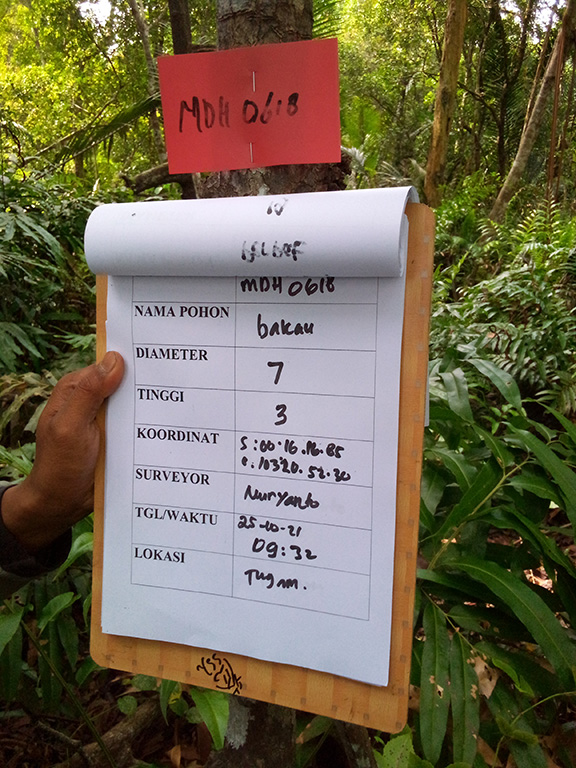 MDH 0618
MDH 0618
NAMA POHON bakau
DIAMETER 7
TINGGI 3
KOORDINAT S : 00.16.16.85
E. 103'20. 52.20
SURVEYOR Nuryanto
TGL/WAKTU 25-10-21
09:32
LOKASI